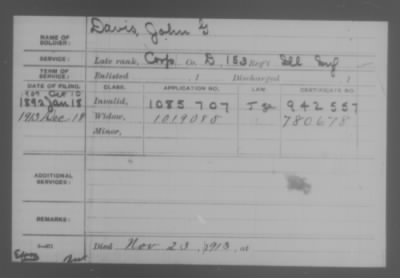 NAME OF SOLDIER: Davis, John G
SERVICE: Late rank, Corp. Co. D, 153 Reg't Ill Inf
TERM OF SERVICE: Enlisted 1 Discharged 1
DATE OF FILING. CLASS. APPLICATION NO. LAW. CERTIFICATE NO.
Oct 10
1892 Jan 18 Invalid, 1085707 942557
1913 Dec 18 Widow, 1019088 780678
Minor,
ADDITIONAL SERVICES:
REMARKS:
Died Nov 23, 1913, at